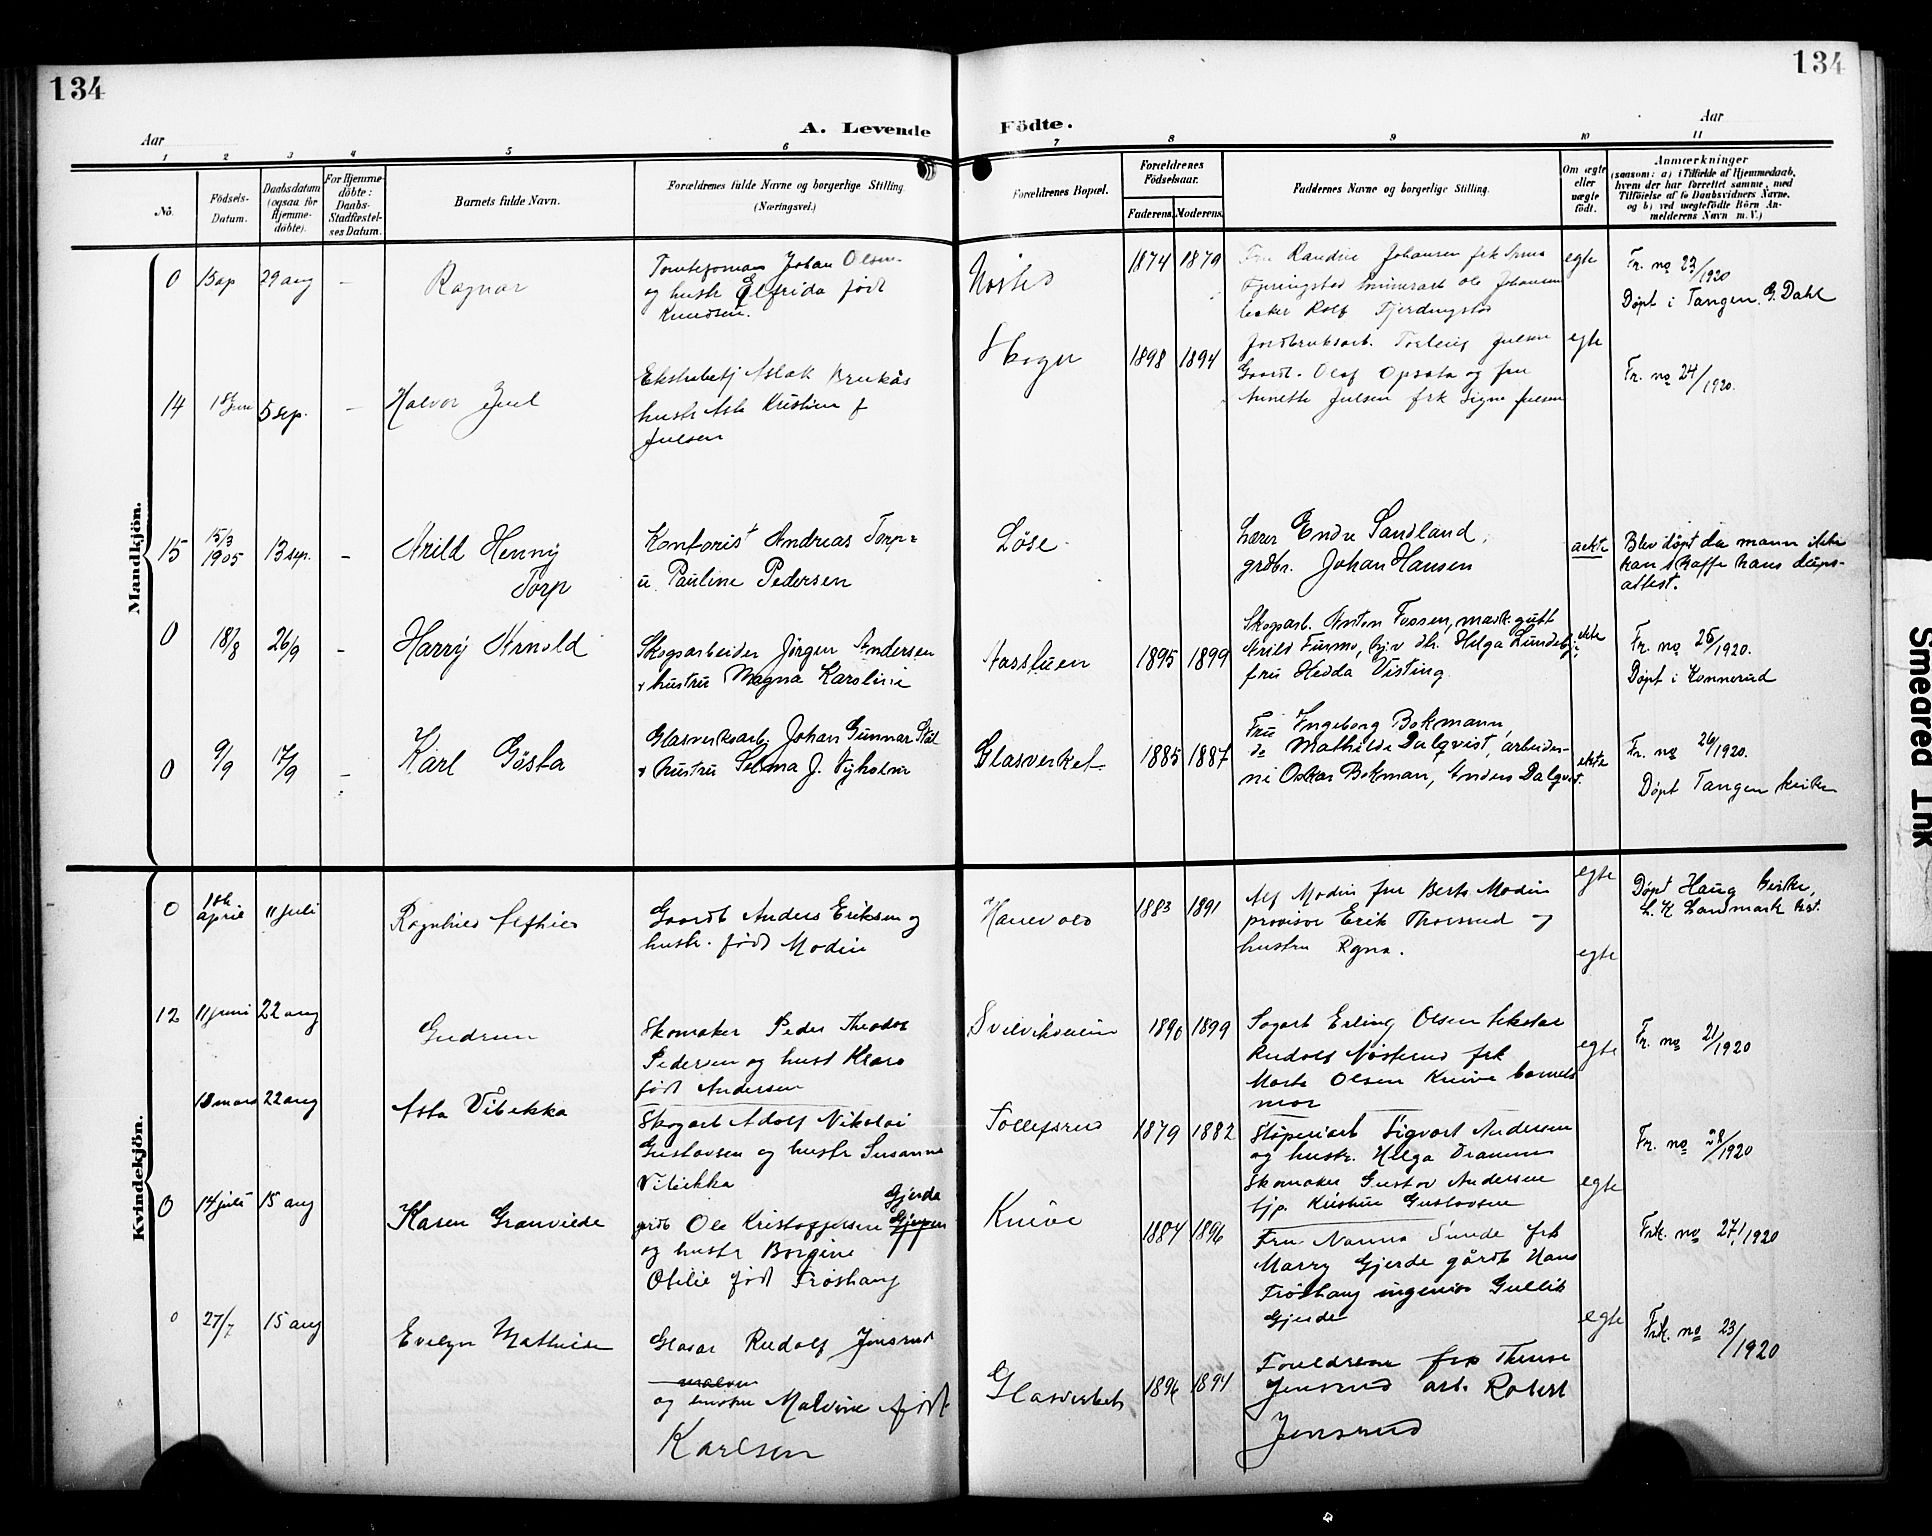 134
134
A. Levende
Födte.
Aar
Aar
1 2 3 4 5 6 7 8 9 10 11
No.
Födsels-
Datum.
Daabsdatum
(ogsaa for
Hjemme-
döbte).
For Hjemme-
döbte:
Daabs-
Stadfæstel-
ses Datum.
Barnets fulde Navn.
Forældrenes fulde Navne og borgerlige Stilling.
(Næringsvei.)
Forældrenes Bopæl.
Forældrenes
Födselsaar.
Faderens. Moderens.
Faddernes Navne og borgerlige Stilling.
Om ægte
eller
uægte
födt.
Anmærkninger
(saasom: a) i Tilfælde af Hjemmedaab,
hvem der har forrettet samme, med
Tilföielse af to Daabsvidners Navne,
og b) ved uægtefödte Börn An-
melderens Navn m. V.)
Mandkjön.
0 29 aug – Ragnar
Johan Olsen
og hustr Elfrida født
Knudsen.
Nøsted
1874 1879
Johansen frk
Ole Johansen
Rolf
egte
Fr. no 23/1920
Døpt i Tangen. G. Dahl
14 5 sep. – Halvor Juel
Aslak Brukås
hustr Asta Kristine f
Julsen
Skoger
1898 1894
Julsen
Gaardb. Olaf Opsata og fru
Annette Julsen frk Signe Julsen
egte
Fr. no 24/1920.
15 15/3 1905 13 sep. – Arild Henny
Torp
Kontorist Andreas Torp
u. Pauline Pedersen
Løse
Lærer Endre Sandland,
grdbr. Johan Hansen
aekte
Blev døpt da mann ikke
kan skaffe hans daaps-
attest.
0 18/8 26/9 – Harry Arnold
Skogsarbeider Jørgen Andersen
+ hustru Magna Karoline
Aasstuen
1895 1899
Skogarb. Anton Fossen, mask.gutt
Arild Furmo, Helga
fru Hedda Visting
ekte
Fr. no 25/1920.
Døpt i Konnerud
0 9/9 17/9 – Karl Gösta
Glasverksarb. Johan Gunnar Stål
+ hustru Selma J. Nyholm
Glasverket
1885 1887
Fru Ingeborg Bokmann,
do Mathilde Dalqvist, arbeider-
ne Oskar Bokman, Anders Dalqvist.
ekte
Fr. no 26/1920.
Døpt Tangen kirke
Kvindekjön.
0 10de april 11 juli
Gaardb Anders Eriksen og
hustr. født Modin
Hanevold
1883 1891
Alf Modin fru Berta Modin
provisor Erik Thorsrud og
hustru Ragna.
egte
Døpt Haug kirke,
L. K Landmark kst.
egte
12 11 juni 22 aug Gudrun
Skomaker Peder Theodor
Pedersen og hust Klara
født Andersen
Svelvikveien
1890 1899
Sagarb Erling Olsen
Rudolf Nøsterud frk
Marte Olsen Knive barnets
mor
egte
Fr. no 21/1920
22 aug Asta Vibekka
Skogarb Adolf Nikolai
Gustavsen og hustr Susanna
Vibekka
Tollefsrud
1879 1882
Støperiarb Sigvart Andersen
og hustr. Helga Drammen
Skomaker Gustav Andersen
tjp. Kristine Gustavsen
Fr. no 28/1920
0 14 juli 15 aug Karen Granvilde
Gjerde
grdb Ole Kristoffersen
og hustr Borgine
Otilie født Trøshaug
Knive
1884 1896
Fru Nanna Sunde frk
Marry Gjerde gårdb Hans
Trøshaug ingeniør Gullik
Gjerde
egte
Frk. no 27/1920
0 27/7 15 aug Evelyn Mathilde
Glasar Rudolf Jensrud
og hustru Malvine født
Karlsen
Glasverket
1896 1894
Foreldrene frk Thense
Jensrud arb. Robert
Jensrud
egte
Frk. no 23/1920
Smeared Ink